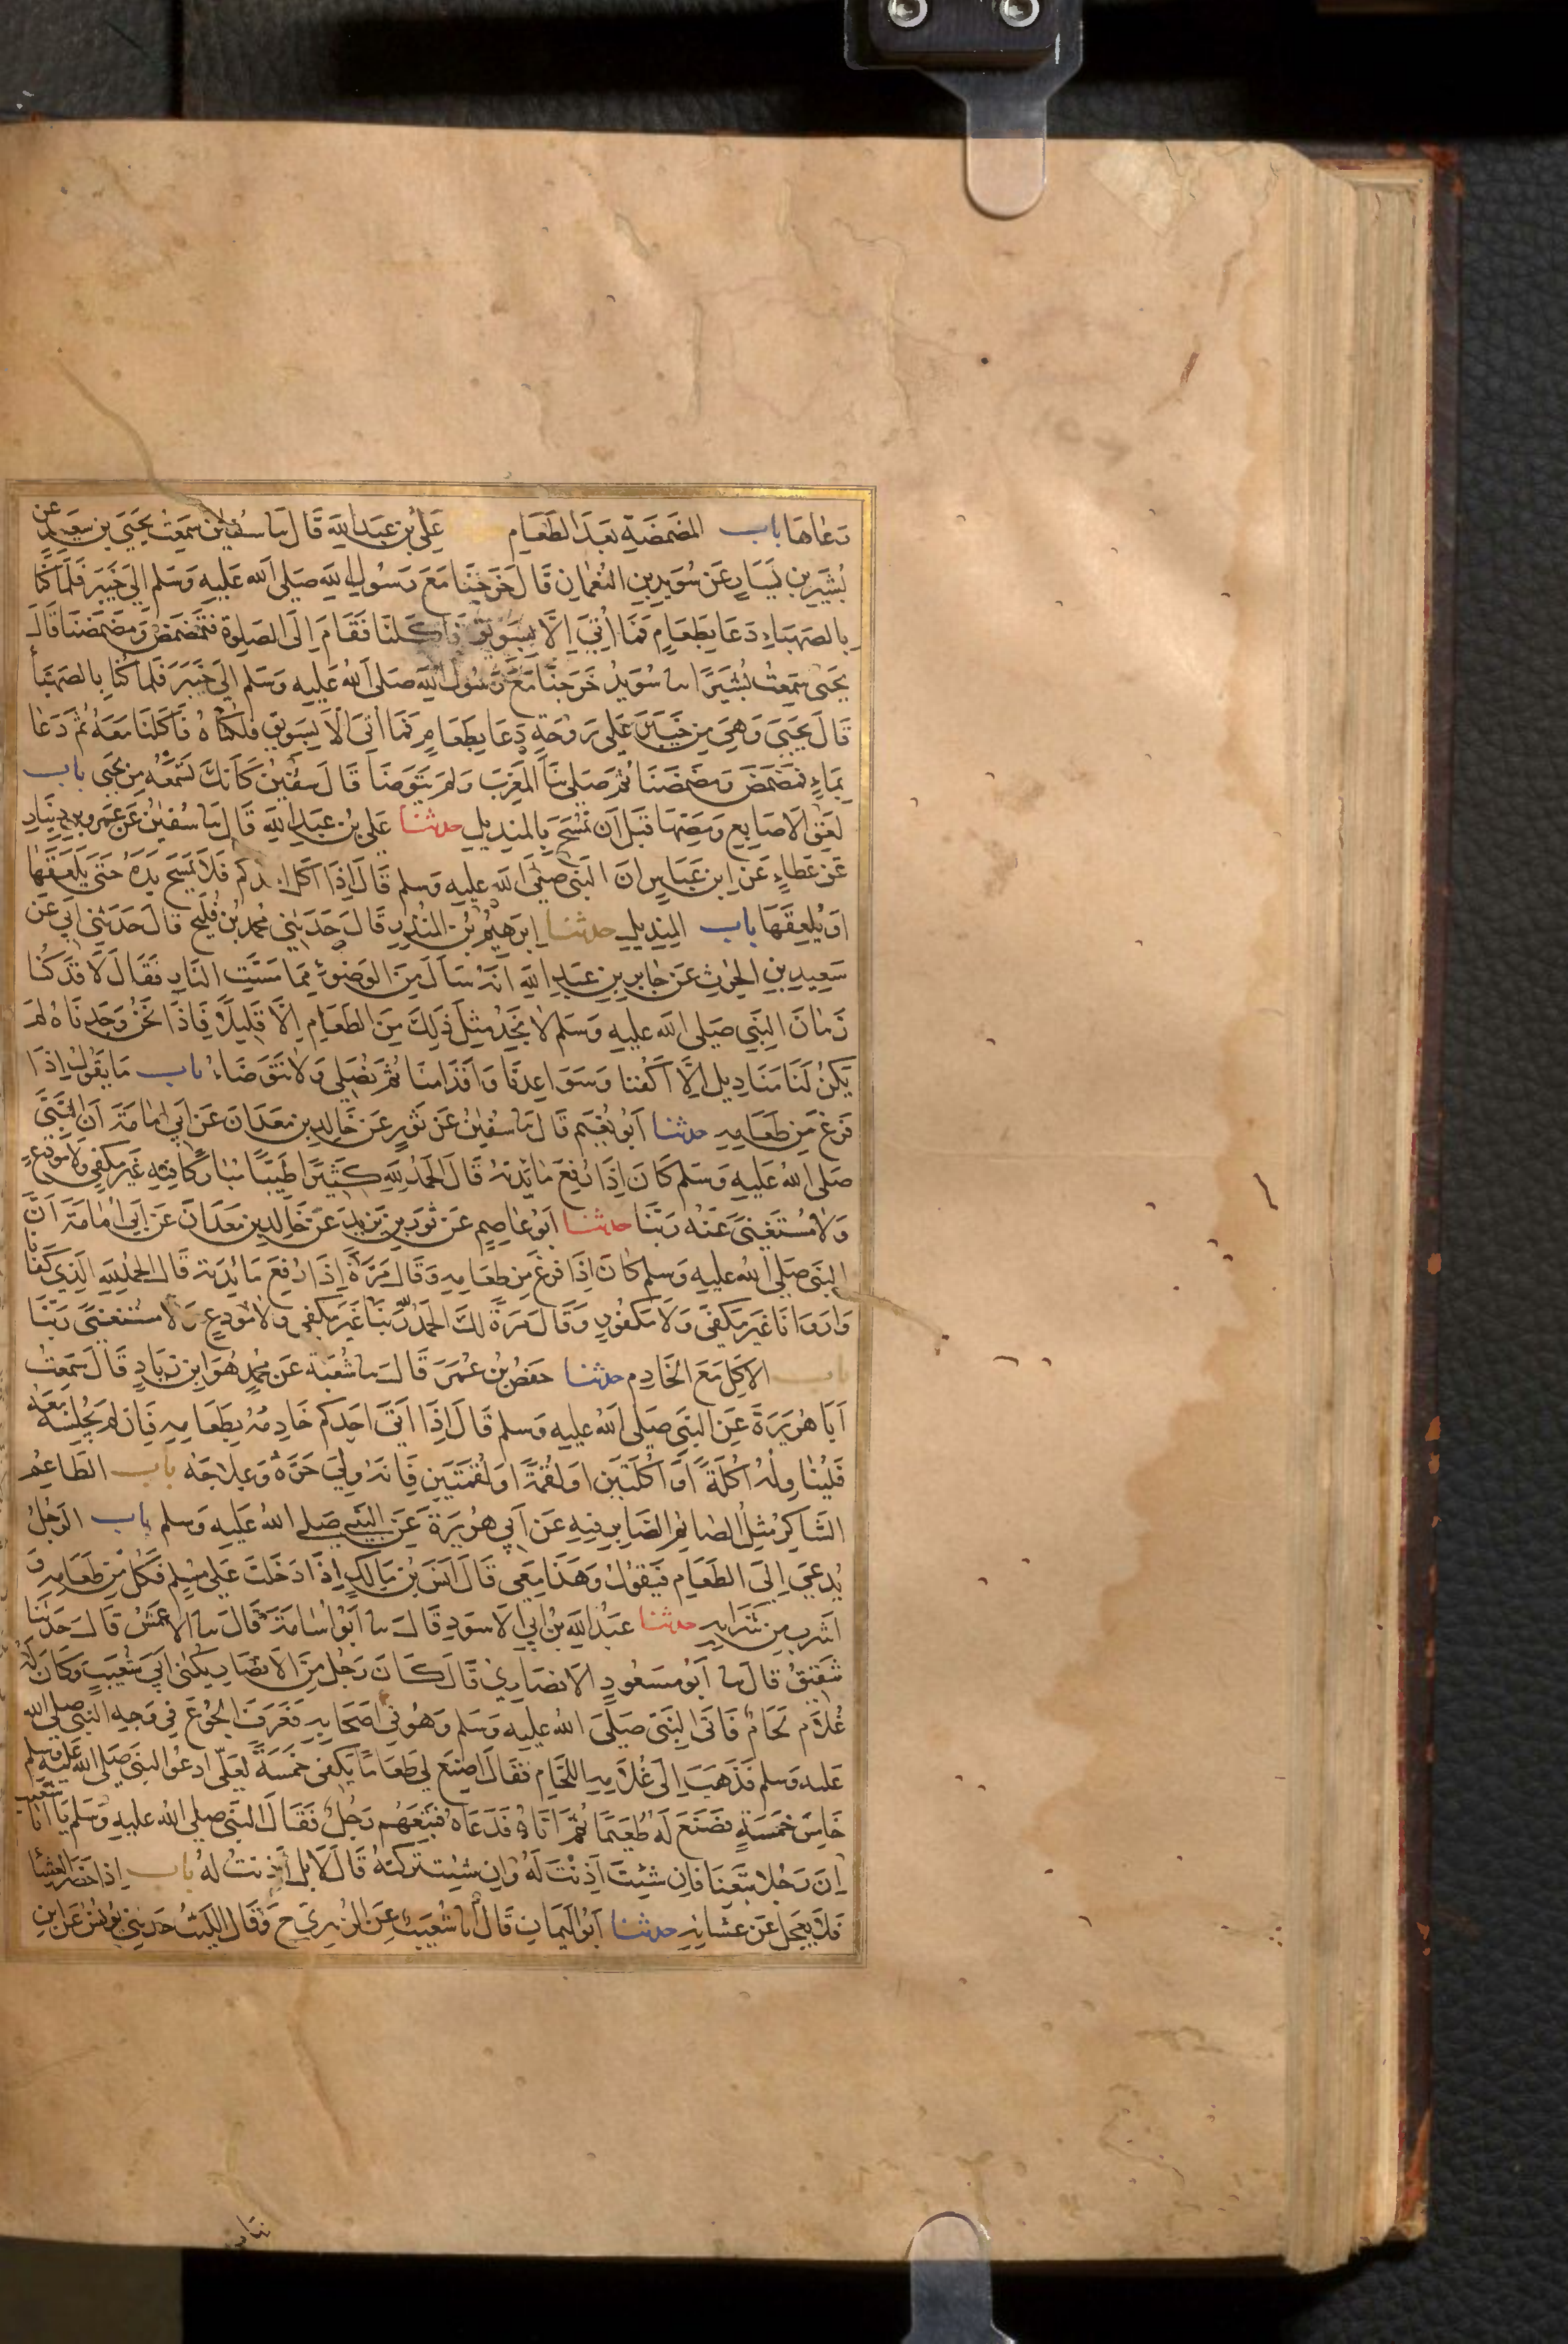 دعاها باب المضمضة بعد الطعام علي بن عبد الله قال سا سفين سمعت يحيى بن سعيد عن
بُشير بن يَسار عن سُويد بن النعمان قال خرجنا مع رسول الله صلى الله عليه وسلم الى خيبر فلما كنا
بالصهباء دعا بطعام فما أتي الا بسويق فأكلنا فقام الى الصلوة فتمضمض ومضمضنا قال
يحيى سمعت بُشيرا سا سويد خرجنا مع رسول الله صلى الله عليه وسلم الى خيبر فلما كنا بالصهبا
قال يحيى وهي من خيبر على روحة دعا بطعام فما اتي الا بسويق فلكناه فاكلنا معه ثم دعا
بماء فمضمض ومضمضنا ثم صلى بنا المغرب ولم يتوضا قال سفين كانك تسمعه من يحيى باب
لعق الاصابع ومصها قبل ان تمسح بالمنديل حدثنا علي بن عبد الله قال سا سفين عن عمرو بن دينار
عن عطاء عن ابن عباس ان النبي صلى الله عليه وسلم قال اذا اكل احدكم فلا يمسح يده حتى يلعقها
او يُلعقها باب المنديل حدثنا ابرهيم بن المنذر قال حدثني محمد بن فليح قال حدثني ابي عن
سعيد بن الحرث عن جابر بن عبد الله انه سال من الوضوء مما مست النار فقال لا قد كنا
زمان النبي صلى الله عليه وسلم لا نجد مثل ذلك من الطعام الا قليلا فاذا نحن وجدناه لم
يكن لنا مناديل الا اكفنا وسواعدنا واقدامنا ثم نصلي ولا نتوضاء باب ما يقول اذا
فرغ من طعامه حدثنا ابو نعيم قال سا سفين عن ثور عن خالد بن معدان عن ابي امامة ان النبي
صلى الله عليه وسلم كان اذا رفع مائدته قال الحمد لله كثيرا طيبا مباركا فيه غير مكفي ولا مودع
ولا مستغنى عنه ربنا حدثنا ابو عاصم عن ثور بن يزيد عن خالد بن معدان عن ابي امامة ان
النبي صلى الله عليه وسلم كان اذا فرغ من طعامه وقال مرة اذا رفع مائدته قال الحمد لله الذي كفانا
واروانا غير مكفي ولا مكفور وقال مرة لك الحمد ربنا غير مكفي ولا مودع ولا مستغنى ربنا
باب الاكل مع الخادم حدثنا حفص بن عمر قال سا شعبة عن محمد هو ابن زياد قال سمعت
ابا هريرة عن النبي صلى الله عليه وسلم قال اذا اتى احدكم خادمه بطعامه فان لم يجلسه معه
فليناوله اكلة او اكلتين او لقمة او لقمتين فانه ولي حره وعلاجه باب الطاعم
الشاكر مثل الصائم الصابر فيه عن ابي هريرة عن النبي صلى الله عليه وسلم باب الرجل
يدعى الى الطعام فيقول وهذا معي قال انس بن مالك اذا دخلت على مسلم فكل من طعامه و
اشرب من شرابه حدثنا عبد الله بن ابي الاسود قال سا ابو اسامة قال سا الاعمش قال حدثنا
شقيق قال سا ابو مسعود الانصاري قال كان رجل من الانصار يكنى ابي شعيب وكان له
غلام لحام فاتى النبي صلى الله عليه وسلم وهو في اصحابه فعرف الجوع في وجه النبي صلى الله
عليه وسلم فذهب الى غلامه اللحام فقال اصنع لي طعاما يكفي خمسة لعلي ادعو النبي صلى الله عليه وسلم
خامس خمسة فصنع له طعيما ثم اتاه فدعاه فتبعهم رجل فقال النبي صلى الله عليه وسلم يا ابا شعيب
ان رجلا تبعنا فان شئت اذنت له وان شئت تركته قال لا بل اذنت له باب اذا حضر العشا
فلا يعجل عن عشائه حدثنا ابو اليمان قال انا شعيب عن الزهري ح وقال الليث حدثني يونس عن ابن